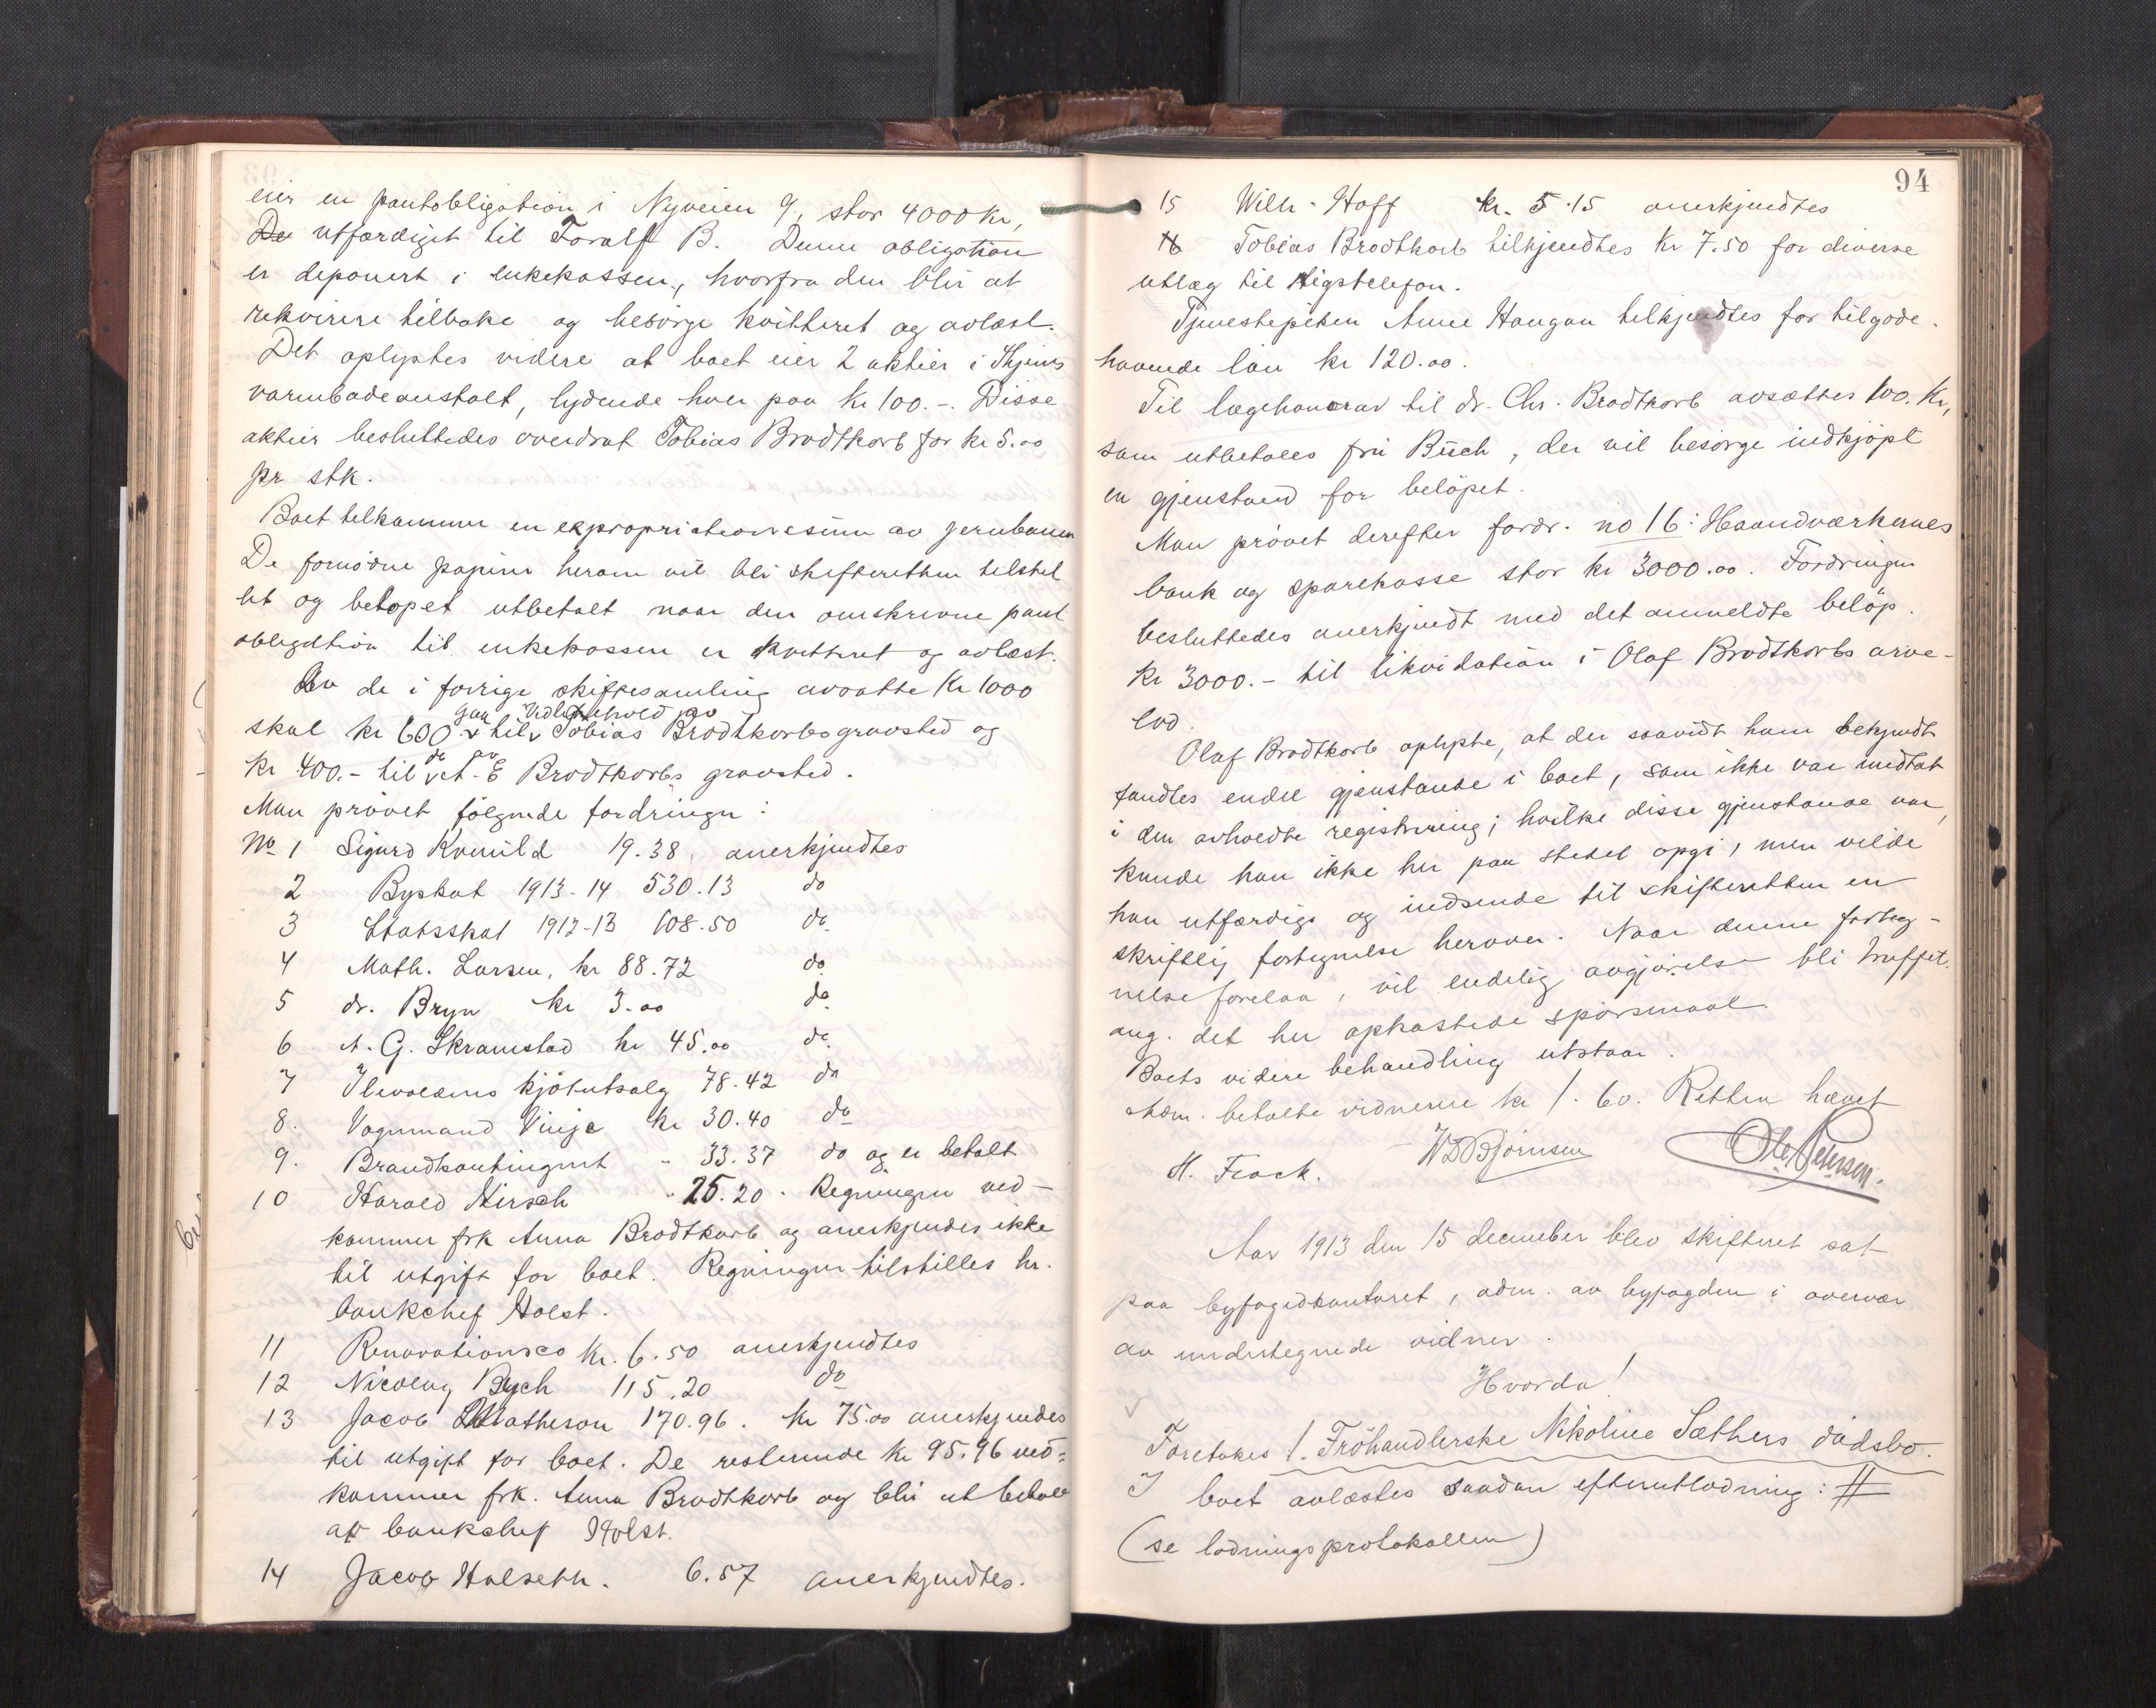 eier en pantobligation i Nyveien 9, stor 4000 kr,
De utfærdiget til Toralf B. Denne obligation
er deponert i enkekassen, hvorfra den blir at
rekvirere tilbake og besörge kvitteret og avlæst.
Det oplystes videre at boet eier 2 aktier i
varmbadeanstalt, lydende hver paa kr 100.-. Disse
aktier besluttedes overdrat Tobias Brodtkorb for kr 5.00
pr stk.
Boet tilkommer en expropriationssum av jernbanen
De fornödne papirer herom vil bli skifteretten tilstil
let og belöpet utbetalt naar den omskrevne pant
obligation til enkekassen er kvitteret og avlæst.
Av de i forrige skiftesamling avsatte kr 1000
skal kr 600 gaa til vedlikehold av Tobias Brodtkorbs gravsted og
kr 400.- til do av A. E Brodtkorbs gravsted.
Man prövet fölgende fordringer:
No 1 Sigurd Kvenild 19.38, anerkjendtes
2 Byskat 1913-14 530.13 do
3 Statsskat 1912-13 108.50 do
4 Math. Larsen, kr 88.72 do
5 dr. Bryn kr 3.00 do
6 A. G. Skramstad kr 45.00 do
7 Ilevoldens kjötutsalg 78.42 do
8. Vognmand Vinje kr 30.40 do
9. Brandkontingent " 33.37 do og er betalt
10 Harald Hirsch " 25.20. Regningen ved-
kommer frk Anna Brodtkorb og anerkjendes ikke
til utgift for boet. Regningen tilstilles hr.
bankchef Holst.
11 Renovationsco kr. 6.50 anerkjendtes
12 Nicolay Buch 115.20 do
13 Jacob Matheson 170.96. kr 75.00 anerkjendes
til utgift for boet. De resterende kr 95.96 ved-
kommer frk. Anna Brodtkorb og blir at betale
av bankchef Holst.
14 Jacob Halseth. 6.57 anerkjendtes.
94
15 Wilh. Hoff kr. 5.15 anerkjendtes
16 Tobias Brodtkorb tilkjendtes kr 7.50 for diverse
utlæg til rigstelefon.
Tjenestepiken Anne Haugan tilkjendtes for tilgode-
havende lön kr 120.00.
Til lægehonorar til dr. Chr. Brodtkorb avsættes 100. kr,
som utbetales fru Büch, der vil besörge indkjöpt
en gjenstand for belöpet.
Man prövet derefter fordr. no 16: Haandværkernes
bank og sparekasse stor kr 3000.00. Fordringen
besluttedes anerkjendt med det anmeldte belöp.
kr 3000.- til likvidation i Olaf Brodtkorbs arve-
lod.
Olaf Brodtkorb oplyste, at der saavidt ham bekjendt
fandtes endel gjenstande i boet, som ikke var medtat
i den avholdte registrering; hvilke disse gjenstande var,
kunde han ikke her paa stedet opgi, men vilde
han utfærdige og indsende til skifteretten en
skriftlig fortegnelse herover. Naar denne forteg-
nelse forelaa, vil endelig avgjörelse bli truffet.
ang. det her opkastede spörsmaal
Boets videre behandling utstaar.
Adm. betalte vidnerne kr 1.60. Retten hævet
H. Frack. Björnsen Ole Petersen.
Aar 1913 den 15 december blev skifteret sat
paa byfogedkontoret, adm. av byfogden i overvær
av undertegnede vidner.
Hvorda!
Foretokes 1. Fröhandlerske Nikoline Sæthers dödsbo.
I boet avlæstes saadan efterutlodning: #
(se lodningsprotokollen)